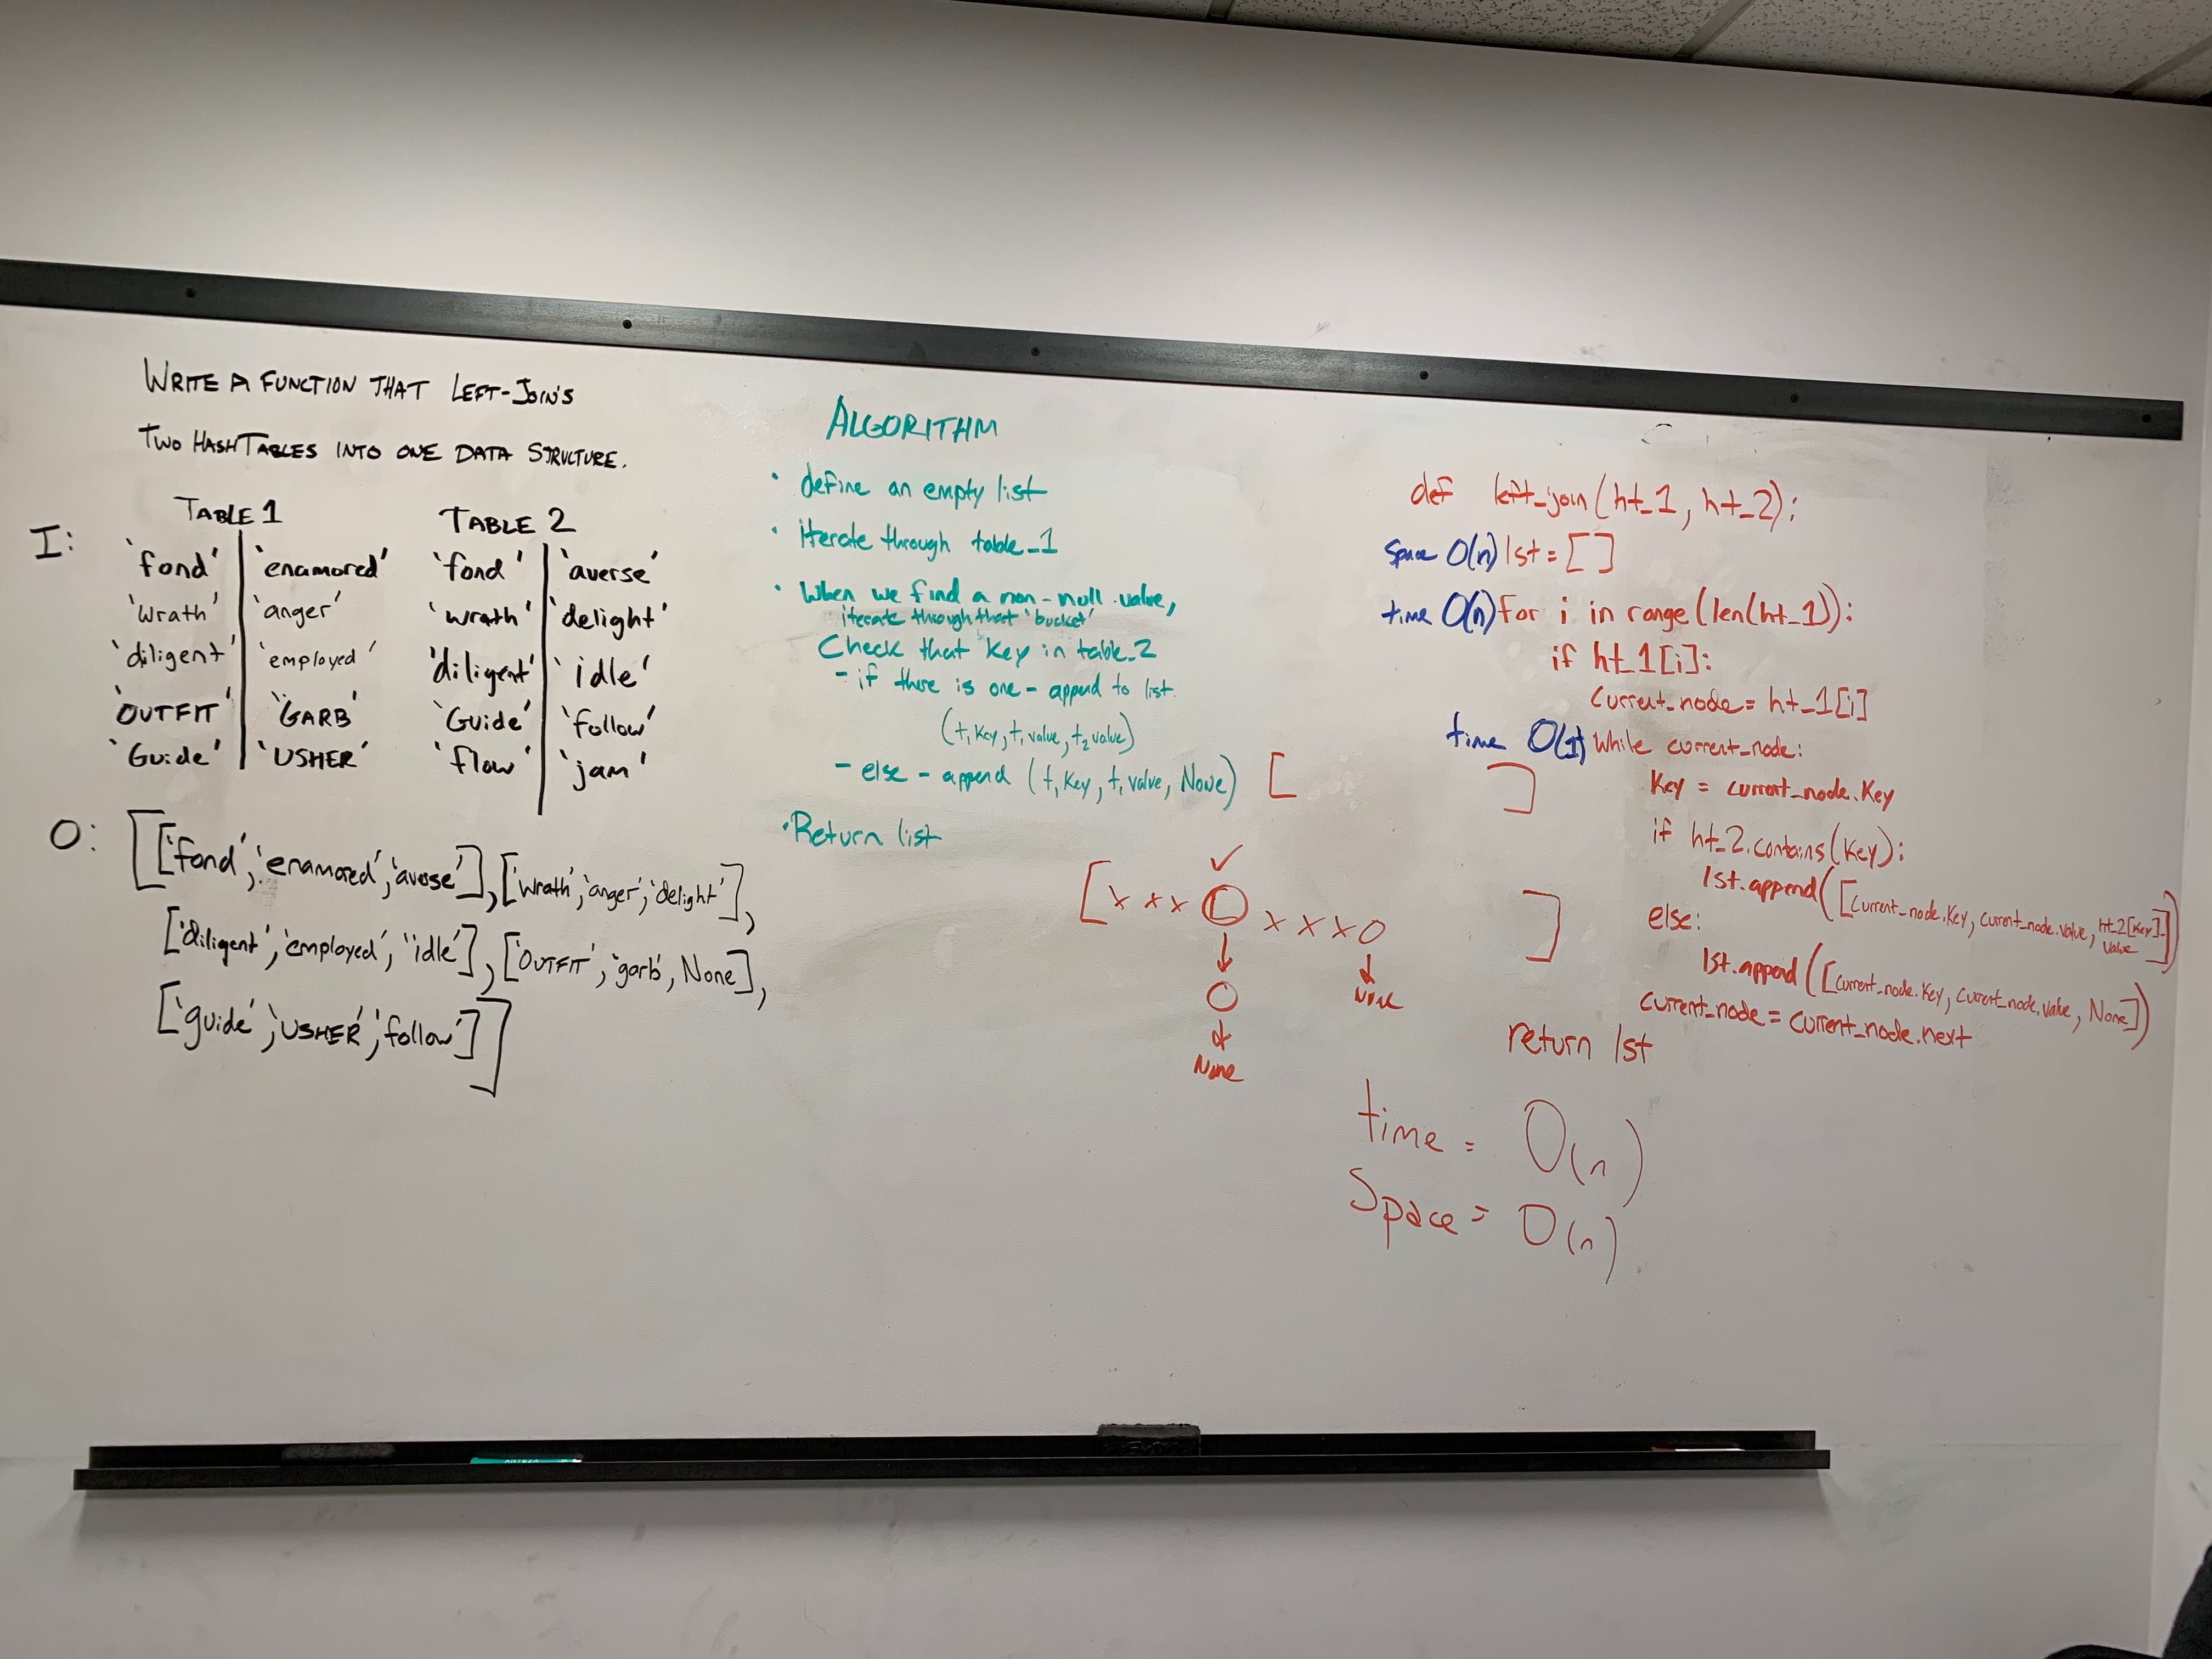 WRITE A FUNCTION THAT LEFT-JOIN'S
TWO HASHTABLES INTO ONE DATA STRUCTURE.
I:
TABLE 1
'fond' 'enamored'
'wrath' 'anger'
'diligent' 'employed'
'OUTFIT' 'GARB'
'Guide' 'USHER'
TABLE 2
'fond' 'averse'
'wrath' 'delight'
'diligent' 'idle'
'Guide' 'follow'
'flow' 'jam'
O: [['fond','enamored','averse'],['wrath','anger','delight'],
['diligent','employed','idle'],['OUTFIT','garb',None],
['guide','USHER','follow']]
ALGORITHM
• define an empty list
• iterate through table_1
• When we find a non-null value,
iterate through that 'bucket'
Check that key in table_2
- if there is one - append to list
(t, key, t, value, t2 value)
- else - append (t, key, t, value, None)
• Return list
[ ]
✓
[x x x O x x x O ]
O
None
None
def left_join(ht_1, ht_2):
space O(n) lst = []
time O(n) for i in range(len(ht_1)):
if ht_1[i]:
current_node = ht_1[i]
time O(1) while current_node:
key = current_node.key
if ht_2.contains(key):
lst.append([current_node.key, current_node.value, ht_2[key].
value])
else:
lst.append([current_node.key, current_node.value, None])
current_node = current_node.next
return lst
time = O(n)
Space = O(n)